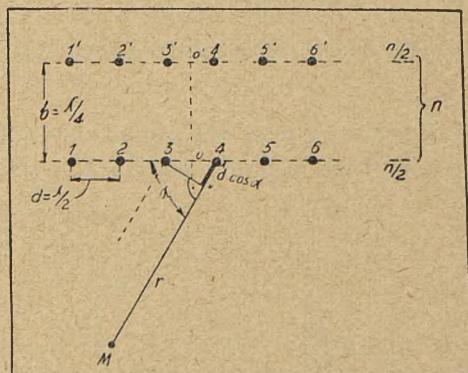 1' 2' 3' o' 4 5' 6' n/2
b = λ/4 n
1 2 3 o 4 5 6 n/2
d = λ/2 α d cos α
r
M